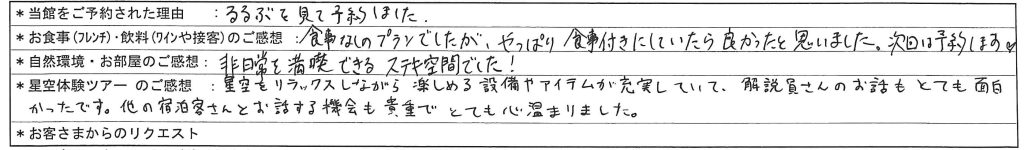 *当館をご予約された理由　：るるぶを見て予約しました.
*お食事(フレンチ)・飲料(ワインや接客)のご感想：食事なしのプランでしたが、やっぱり食事付きにしていたら良かったと思いました。次回は予約します♡
*自然環境・お部屋のご感想：非日常を満喫できるステキ空間でした!
*星空体験ツアーのご感想　：星空をリラックスしながら楽しめる設備やアイテムが充実していて、解説員さんのお話もとても面白
かったです。他の宿泊客さんとお話する機会も貴重でとても心温まりました。
*お客さまからのリクエスト